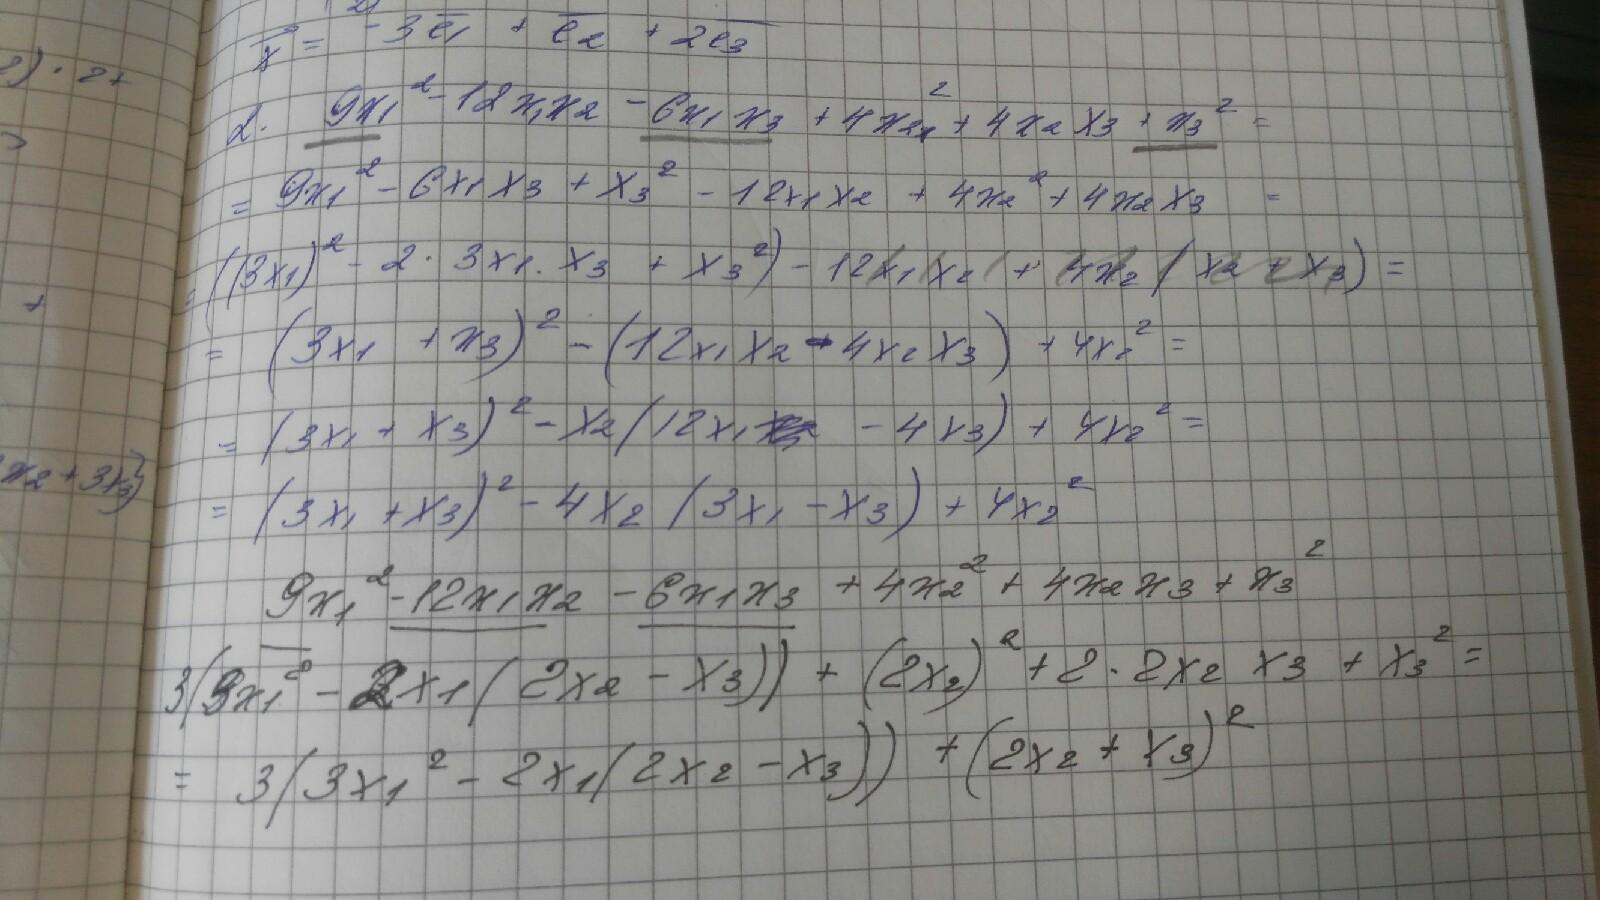 x = -3e₁ + e₂ + 2e₃
2) · 2+
2. 9x₁² - 12x₁x₂ - 6x₁x₃ + 4x₂² + 4x₂x₃ + x₃² =
= 9x₁² - 6x₁x₃ + x₃² - 12x₁x₂ + 4x₂² + 4x₂x₃ =
= ((3x₁)² - 2 · 3x₁ · x₃ + x₃²) - 12x₁x₂ + 4x₂(x₂ + x₃) =
+
= (3x₁ + x₃)² - (12x₁x₂ - 4x₂x₃) + 4x₂² =
= (3x₁ + x₃)² - x₂(12x₁ - 4x₃) + 4x₂² =
x₂ + 3x₃)
= (3x₁ + x₃)² - 4x₂(3x₁ - x₃) + 4x₂²
9x₁² - 12x₁x₂ - 6x₁x₃ + 4x₂² + 4x₂x₃ + x₃²
3(3x₁² - 2x₁(2x₂ - x₃)) + (2x₂)² + 2 · 2x₂x₃ + x₃² =
= 3(3x₁² - 2x₁(2x₂ - x₃)) + (2x₂ + x₃)²